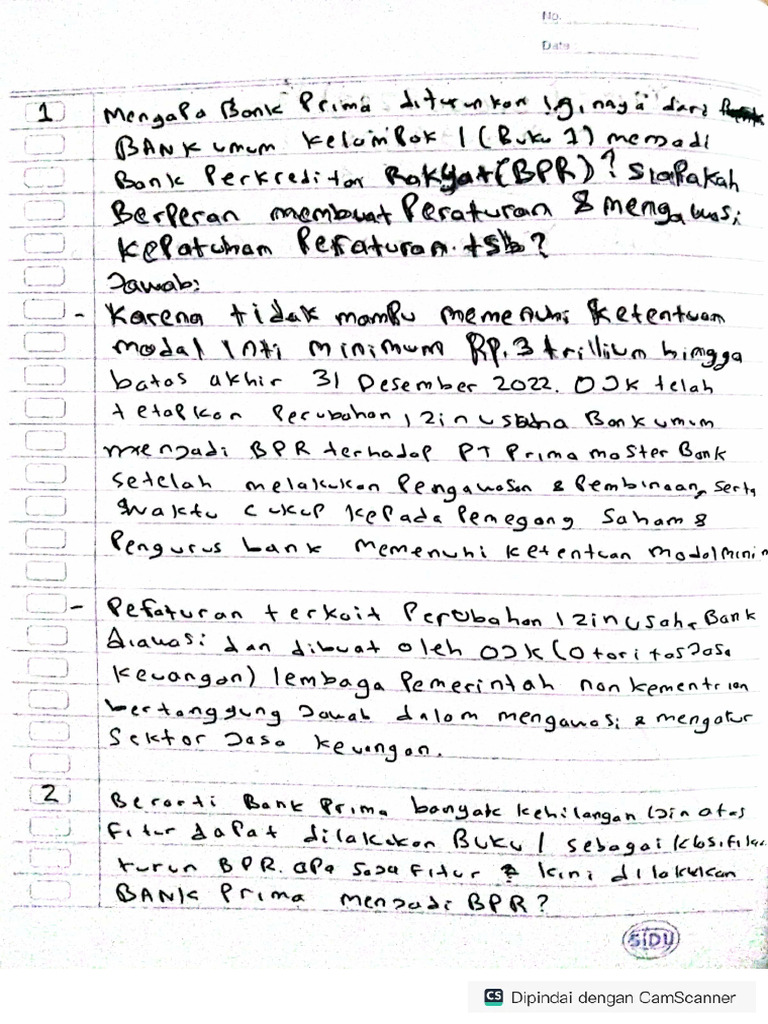 No.
Date
1 Mengapa Bank Prima diturunkan iginnaya dari
BANK umum kelompok 1 (Buku 1) menjadi
Bank Perkreditan Rakyat (BPR)? Siapakah
Berperan membuat Peraturan & mengawasi
kepatuhan Peraturan tsb?
Jawab:
- Karena tidak mampu memenuhi ketentuan
modal inti minimum Rp. 3 trillium hingga
batas akhir 31 Desember 2022. OJK telah
tetapkan Perubahan izin usaha Bank umum
menjadi BPR terhadap PT Prima master Bank
setelah melakukan Pengawasan & Pembinaan, serta
waktu cukup kepada Pemegang Saham &
Pengurus bank memenuhi ketentuan modal minim
- Peraturan terkait Perubahan izin usaha Bank
diawasi dan dibuat oleh OJK (Otoritas Jasa
keuangan) lembaga Pemerintah non kementrian
bertanggung Jawab dalam mengawasi & mengatur
Sektor Jasa keuangan.
2 Berarti Bank Prima banyak kehilangan izin atas
fitur dapat dilakukan Buku 1 sebagai klasifikas
turun BPR. apa saja fitur kini dilakukan
BANK Prima menjadi BPR?
SIDU
CS Dipindai dengan CamScanner